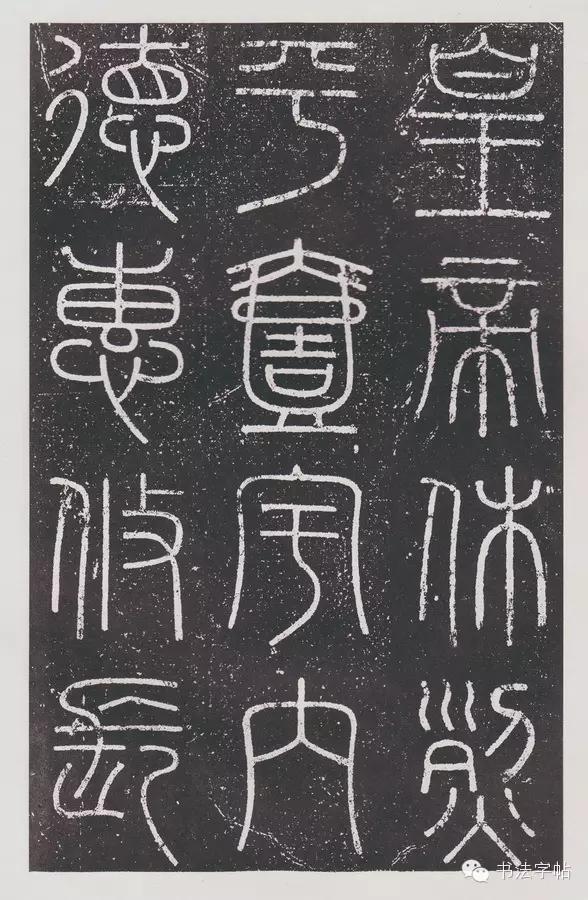 皇帝休烈
平壹宇内
德惠攸長
书法字帖